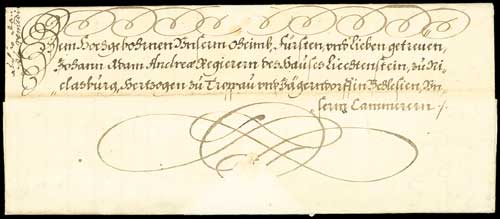 Dem Hochgebohrnen Unserm Oheimb, Fürsten, und lieben getreuen,
Johann Adam Andreæ Regierern des Hauses Liechtenstein, zu Ni-
clasburg, Hertzogen zu Troppau und Jägerndorff in Schlesien, Un-
serm Cammerern /.